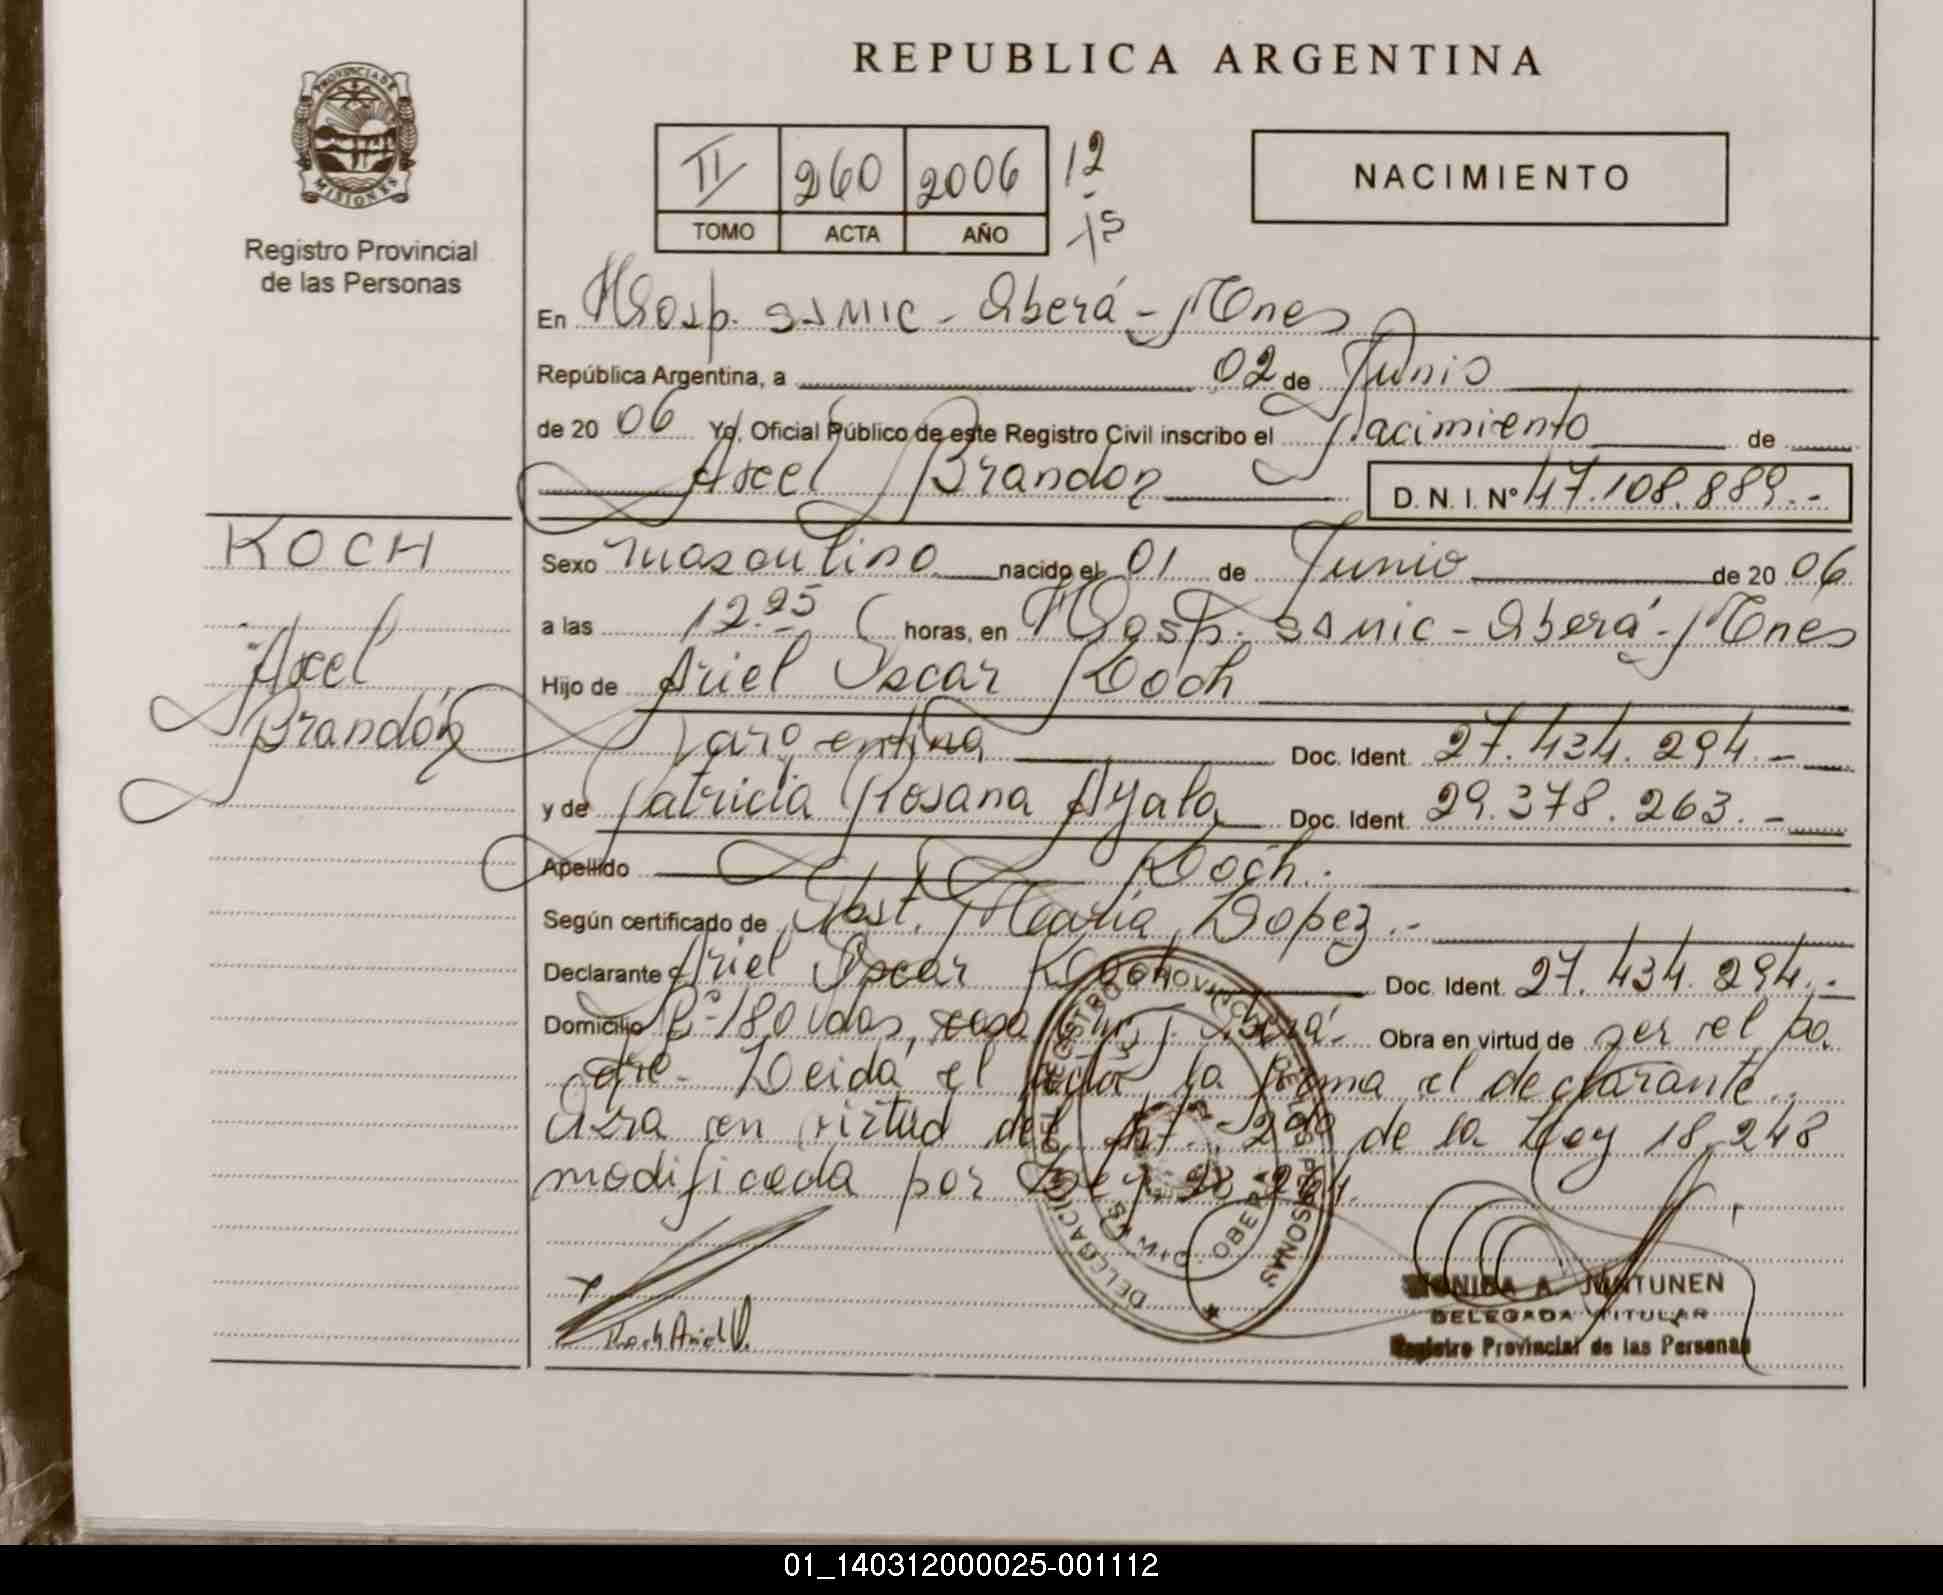 REPUBLICA ARGENTINA
PROVINCIA DE
MISIONES
Registro Provincial
de las Personas
II 260 2006 12
TOMO ACTA AÑO 15
NACIMIENTO
En Hosp. SSMIC - Oberá - Mnes
República Argentina, a 02 de Junio
de 2006 Yo, Oficial Público de este Registro Civil inscribo el Nacimiento de
Axel Brandon D.N.I. Nº 47.108.889.-
KOCH
Axel
Brandón
Sexo masculino nacido el 01 de Junio de 2006
a las 12.25 horas, en Hosp. SSMIC - Oberá - Mnes
Hijo de Ariel Oscar Koch
argentina Doc. Ident. 27.434.294.-
y de Patricia Rosana Ayala Doc. Ident. 29.378.263.-
Apellido Koch.
Según certificado de Obst. Maria Lopez.-
Declarante Ariel Oscar Koch Doc. Ident. 27.434.294.-
Domicilio Bº 180 Vdas, casa Oberá. Obra en virtud de ser el pa
dre. Leida el acta, la firma el declarante.
Obra en virtud del Art. 2do de la Ley 18.248
modificada por Ley 23.264.
DELEGACION DEL REGISTRO PROVINCIAL DE LAS PERSONAS
OBERA
Koch Ariel O.
MONICA A. JUNTUNEN
DELEGADA TITULAR
Registro Provincial de las Personas
01_140312000025-001112